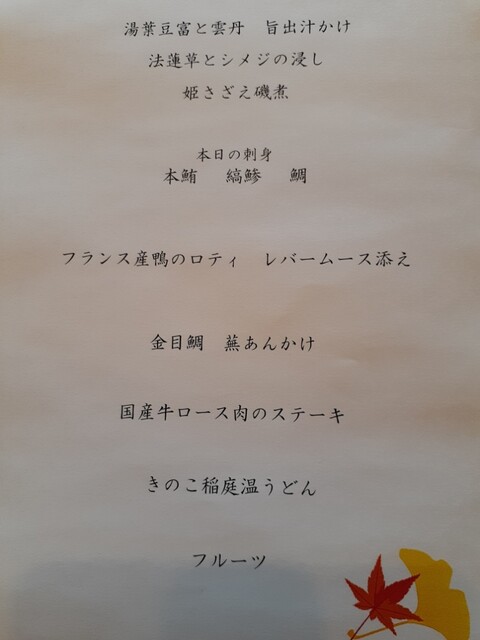 湯葉豆富と雲丹　旨出汁かけ
法蓮草とシメジの浸し
姫さざえ磯煮
本日の刺身
本鮪　縞鯵　鯛
フランス産鴨のロティ　レバームース添え
金目鯛　蕪あんかけ
国産牛ロース肉のステーキ
きのこ稲庭温うどん
フルーツ